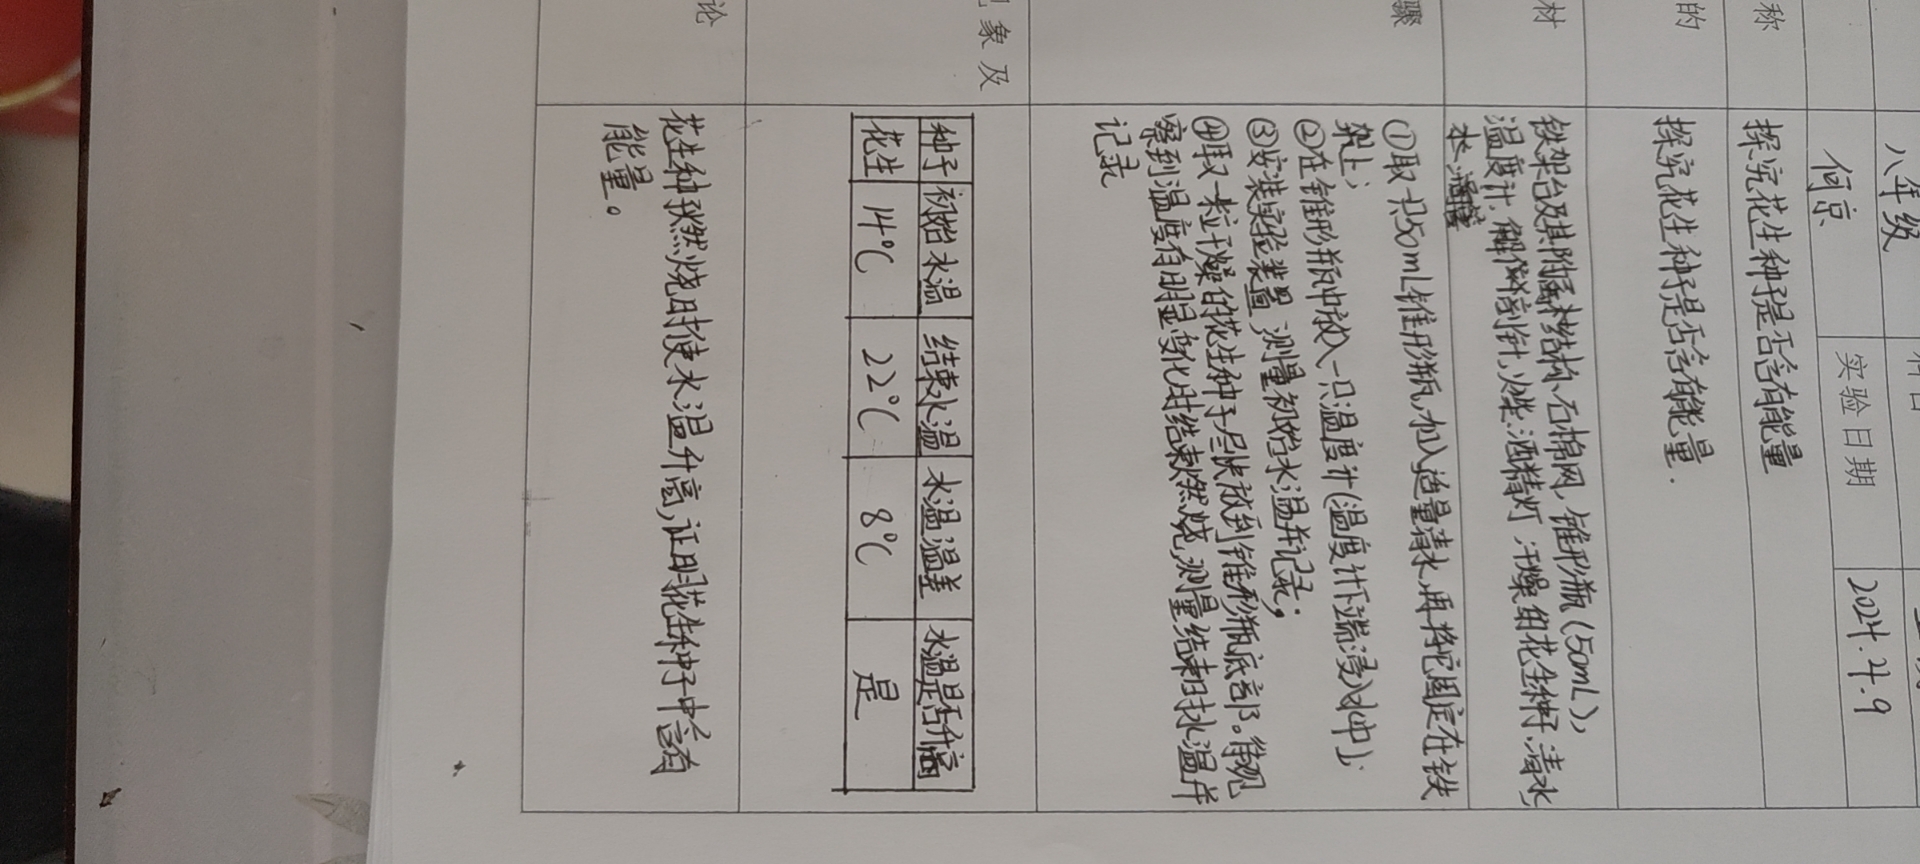 八年级
何京
实验日期
2024.4.9
称
探究花生种子是否含有能量
的
探究花生种子是否含有能量.
材
铁架台及其附属结构、石棉网、锥形瓶(50mL)、
温度计、解剖针、火柴、酒精灯、干燥的花生种子、清水
骤
①取一只50mL锥形瓶,加入适量清水,再将它固定在铁
架上;
②在锥形瓶中放入一只温度计(温度计下端浸入水中);
③安装实验装置,测量初始水温并记录;
④取一粒干燥的花生种子尽快放到锥形瓶底部。待观
察到温度有明显变化时结束燃烧,测量结束时水温并
记录
象 及
种子 初始水温 结束水温 水温温差 水温是否升高
花生 14℃ 22℃ 8℃ 是
论
花生种子燃烧时使水温升高,证明花生种子中含有
能量。